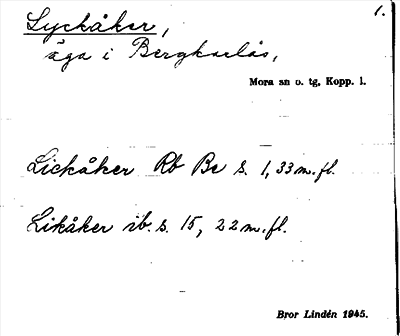 1.
Lyckåker,
äga i Bergkarlås,
Mora sn o. tg, Kopp. l.
Lickåker Rb Be s. 1, 33 m.fl.
Likåker ib. s. 15, 22 m.fl.
Bror Lindén 1945.